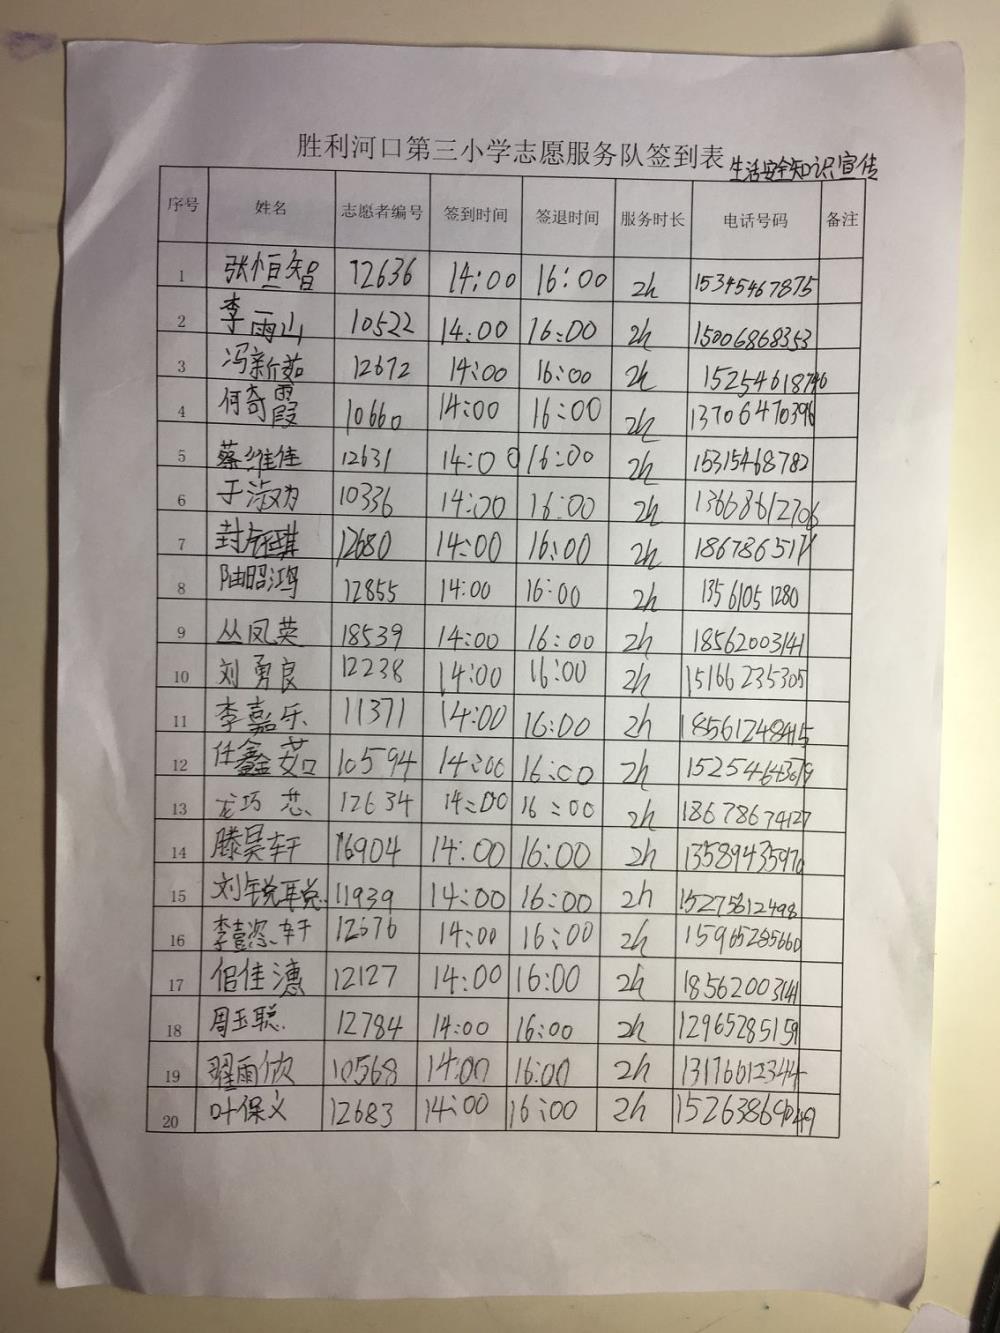 胜利河口第三小学志愿服务队签到表 生活安全知识宣传
序号 姓名 志愿者编号 签到时间 签退时间 服务时长 电话号码 备注
1 张恒智 12636 14:00 16:00 2h 15345467875
2 李雨山 10522 14:00 16:00 2h 15006868353
3 冯新茹 12672 14:00 16:00 2h 15254618746
4 何奇霞 10660 14:00 16:00 2h 13706470396
5 蔡维佳 12631 14:00 16:00 2h 15315468782
6 于淑为 10336 14:00 16:00 2h 13668612706
7 12680 14:00 16:00 2h
8 陆昭鸿 12855 14:00 16:00 2h 13561051280
9 丛凤英 18539 14:00 16:00 2h 18562003141
10 刘勇良 12238 14:00 16:00 2h 15166235305
11 李嘉乐 11371 14:00 16:00 2h 18561248415
12 任鑫茹 10594 14:00 16:00 2h
13 龙巧芯 12634 14:00 16:00 2h 18678674127
14 滕昊轩 16904 14:00 16:00 2h 13589435970
15 11939 14:00 16:00 2h 15275612498
16 12676 14:00 16:00 2h 15965285660
17 佀佳潓 12127 14:00 16:00 2h 18562003141
18 周玉聪 12784 14:00 16:00 2h 12965285159
19 翟雨欣 10568 14:00 16:00 2h 13176612344
20 叶保义 12683 14:00 16:00 2h 15263869049